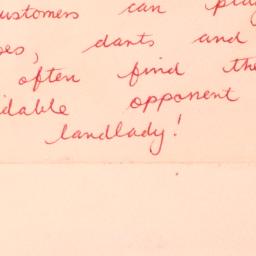 ustomers can play
es, darts and
often find the
idable opponent
landlady!